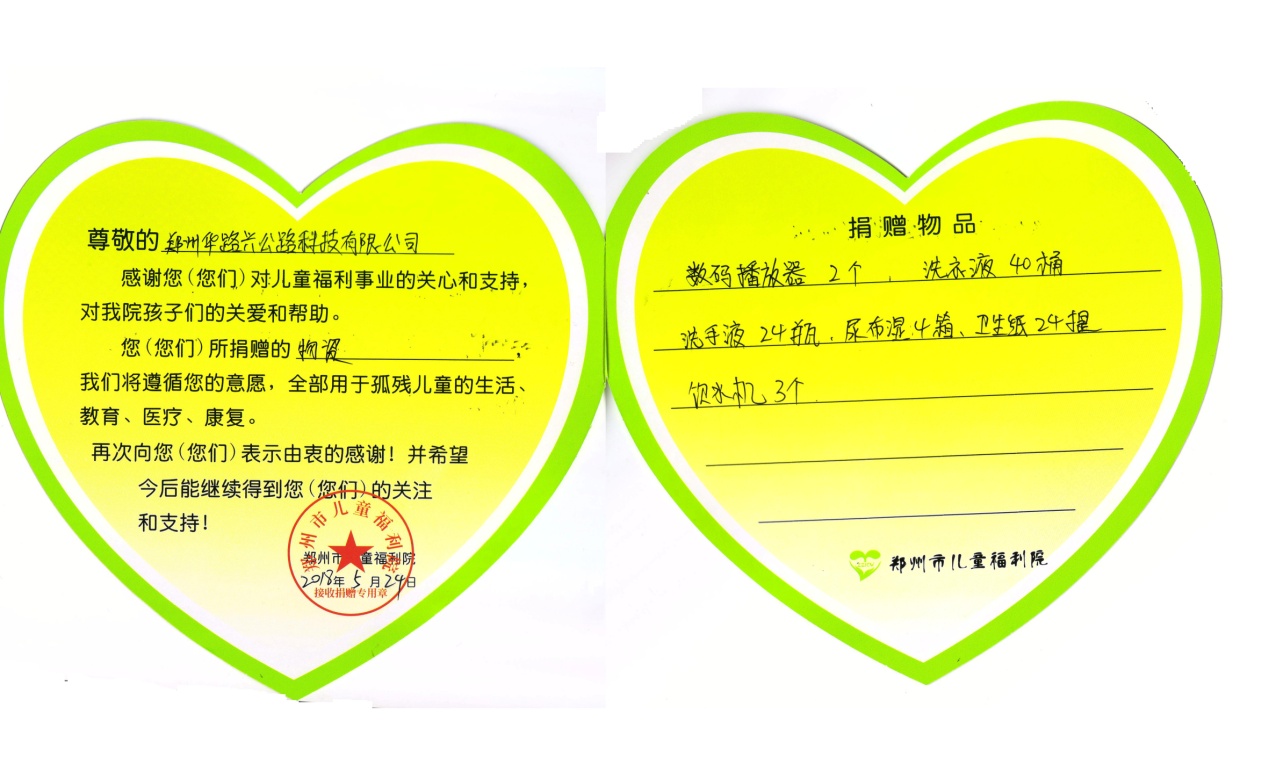 尊敬的 郑州华路兴公路科技有限公司
感谢您(您们)对儿童福利事业的关心和支持，
对我院孩子们的关爱和帮助。
您(您们)所捐赠的 物资，
我们将遵循您的意愿，全部用于孤残儿童的生活、
教育、医疗、康复。
再次向您(您们)表示由衷的感谢！并希望
今后能继续得到您(您们)的关注
和支持！
郑州市儿童福利院
郑州市儿童福利院
2018年5月24日
接收捐赠专用章
捐赠物品
数码播放器 2个，洗衣液 40桶
洗手液 24瓶、尿布湿4箱、卫生纸24提
饮水机 3个
郑州市儿童福利院